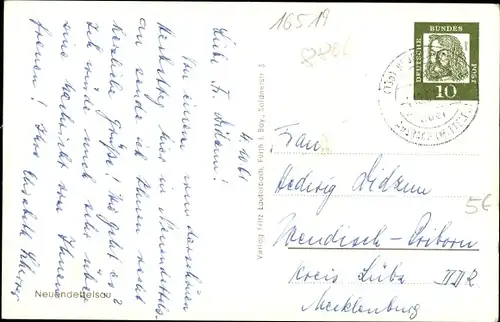 16519
4.10.61
Liebe Fr. Didzun!
Von einem wunderschönen
Herbsttag hier in Neuendettels-
au sende ich Ihnen recht
herzliche Grüße! Wie geht es?
Ich würde mich sehr über
eine Nachricht von Ihnen
freuen! Ihre Elisabeth
Neuendettelsau
Verlag Fritz Lauterbach, Fürth i. Bay., Soldnerstr. 3
DEUTSCHE BUNDESPOST
10
Frau
Hedwig Didzun
Wendisch-Priborn
Kreis Lübz DDR
Mecklenburg
5€